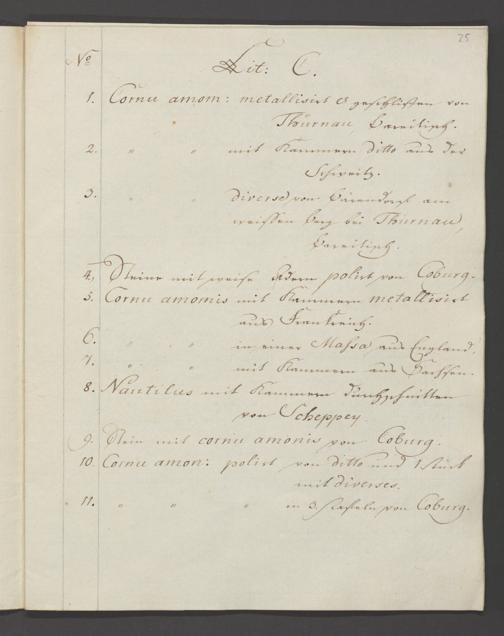 25
No Lit: C.
1. Cornu amom: metallisirt & geschliffen von
Thurnau, Bareitisch.
2. " " mit Kammern ditto aus der
Schweitz.
3. " " diverse von Bärendorf am
weissen berg bei Thurnau,
Bareitisch.
4. Steine mit weise Adern polirt von Coburg.
5. Cornu amomis mit Kammern metallisirt
aus Frankreich.
6. " " in einer Massa aus England.
7. " " mit Kammern aus Sachsen.
8. Nautilus mit Kammern durchschnitten
von Scheppey.
9. Stein mit cornu amonis von Coburg.
10. Cornu amon: polirt von ditto und 1 Stück
mit diverses.
11. " " " in 3. von Coburg.